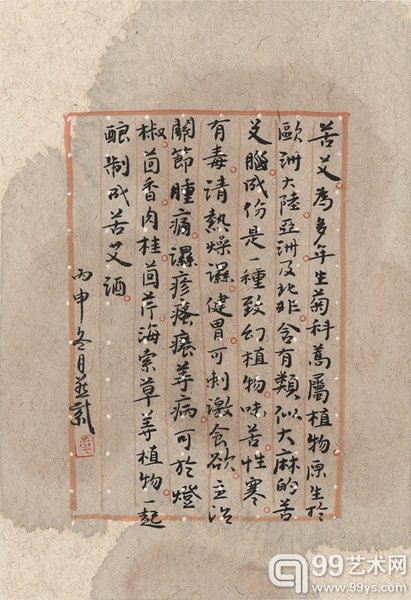 苦艾為多年生菊科蒿屬植物原生於
歐洲大陸亞洲及北非含有類似大麻的苦
艾腦成份是一種致幻植物味苦性寒
有毒請熱燥濕健胃可刺激食欲主治
關節腫痛濕疹瘙癢等病可於燈
椒茴香肉桂茴芹海索草等植物一起
釀制成苦艾酒
丙申冬月
99艺术网
www.99ys.com